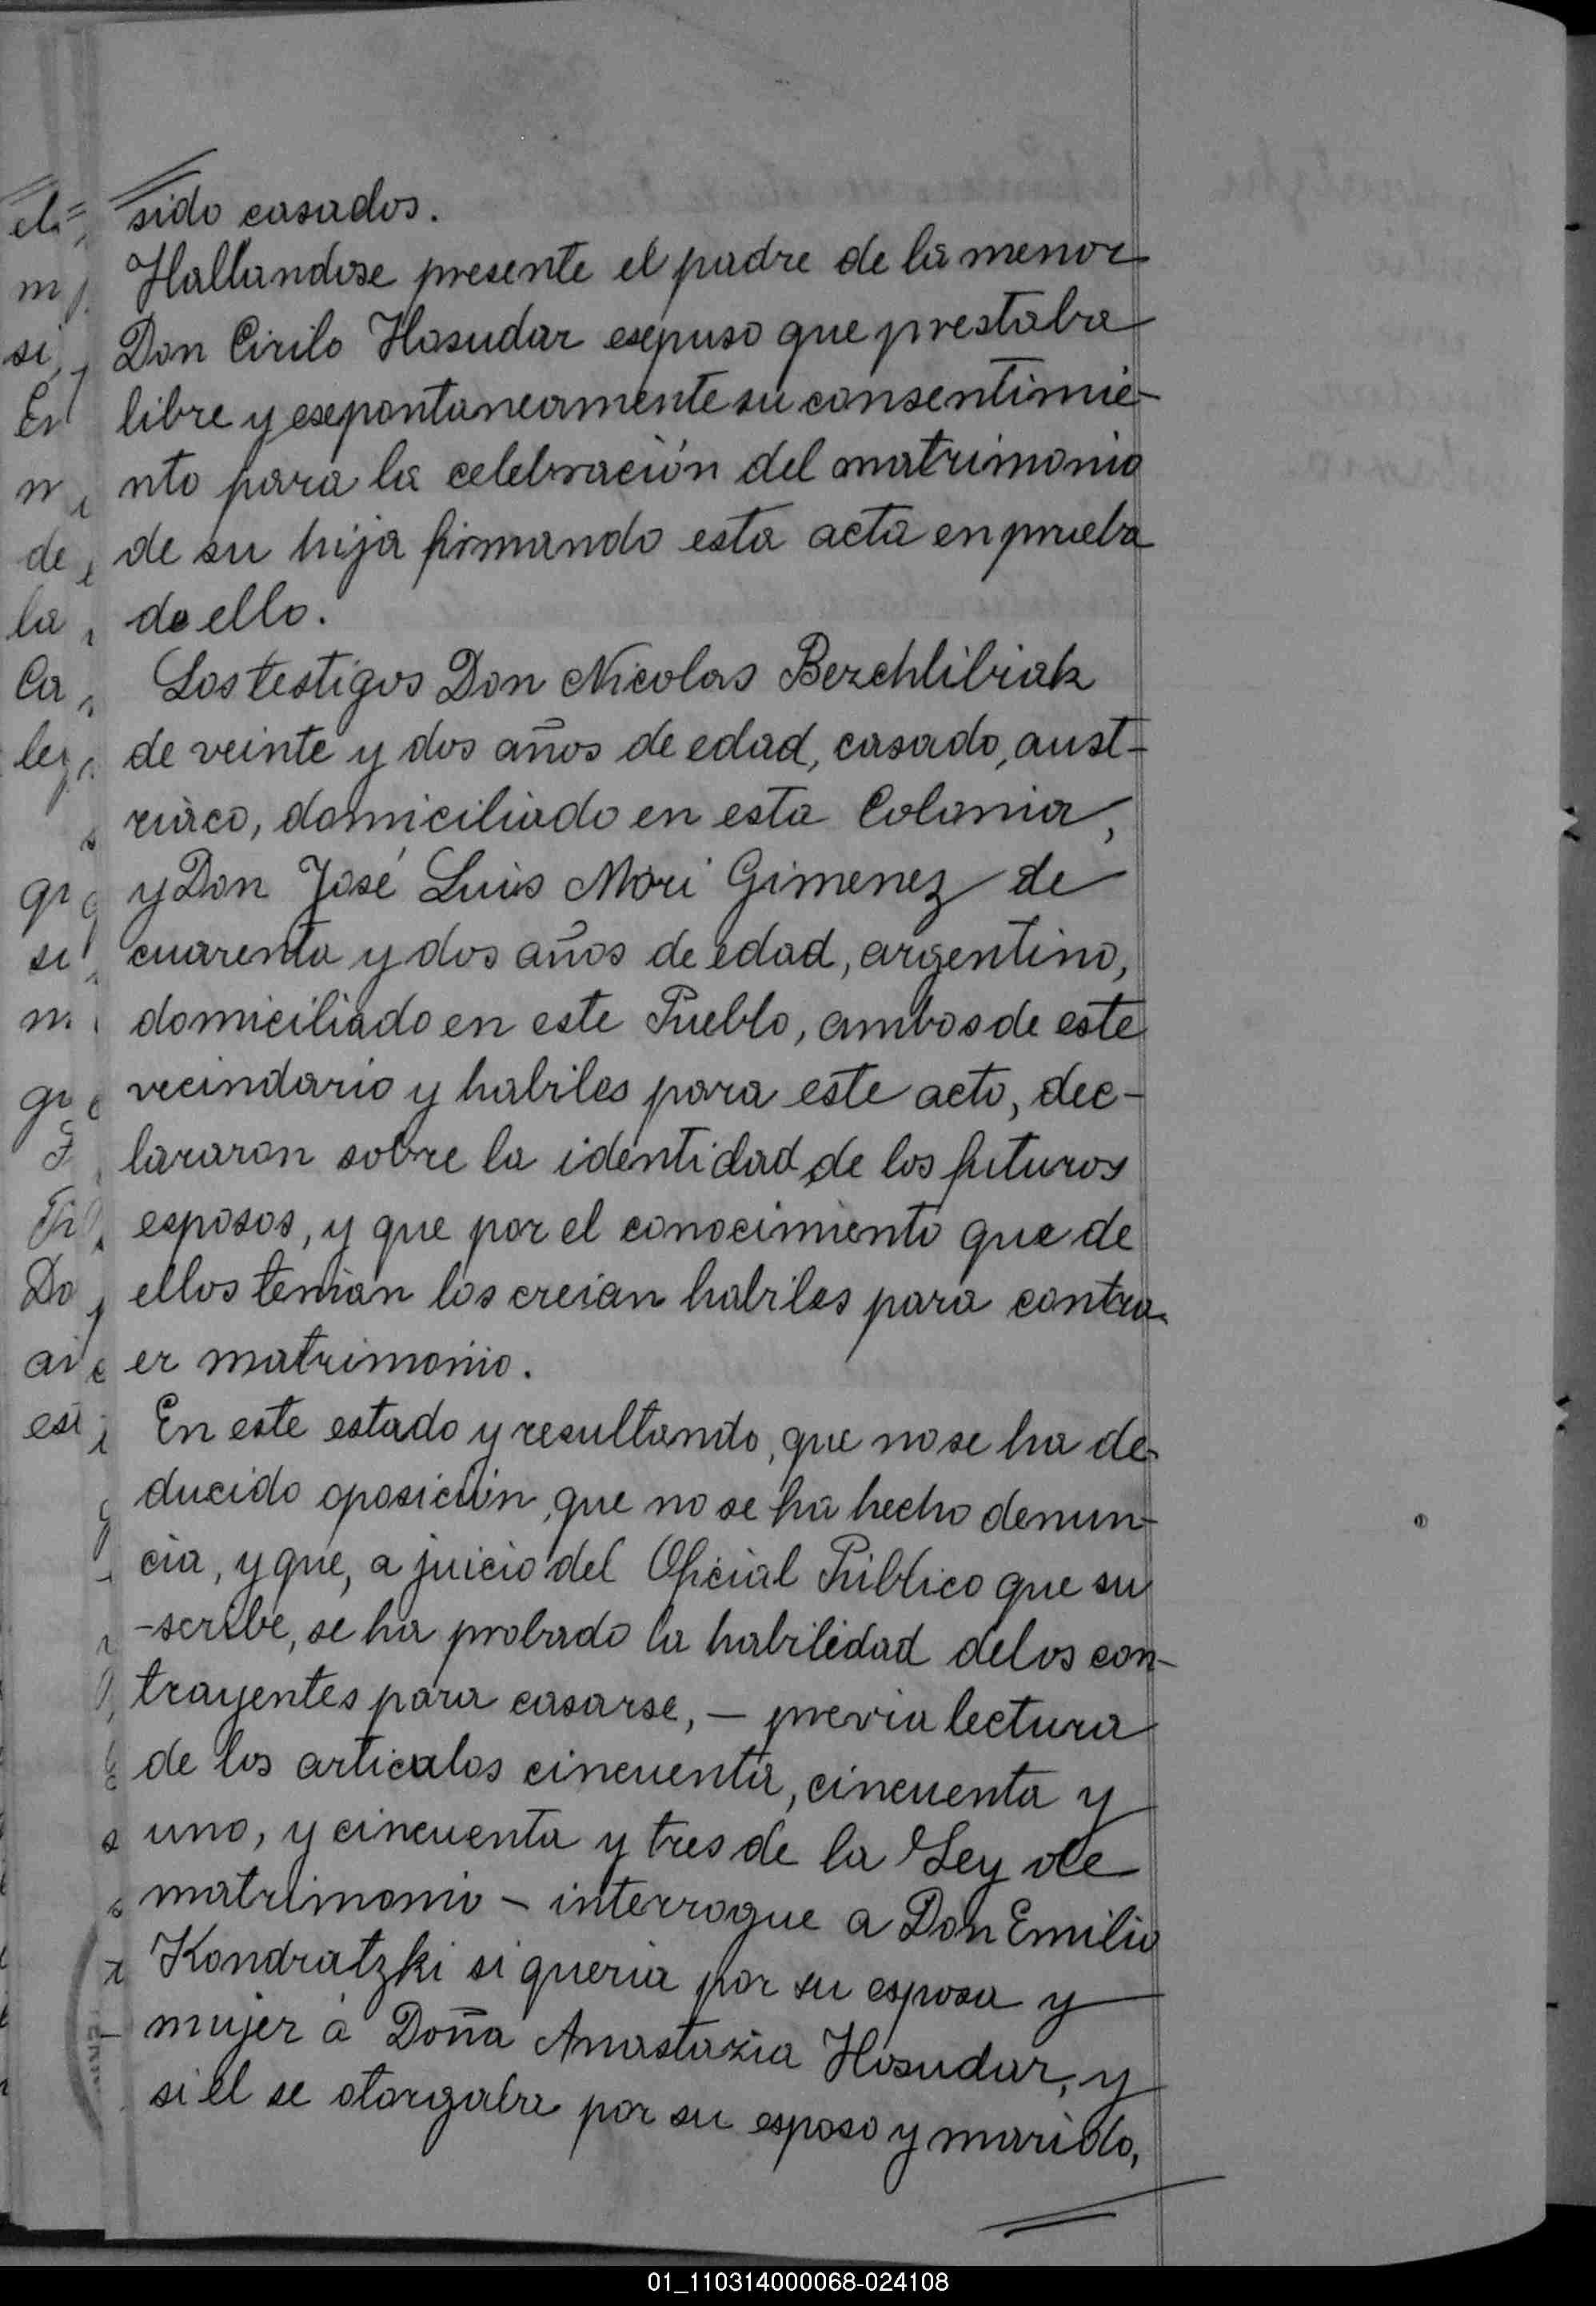 sido casados.
Hallandose presente el padre de la menor
Don Cirilo Hosudar esepuso que prestaba
libre y esepontaneamente su consentimie-
nto para la celebración del matrimonio
de su hija firmando esta acta en prueba
de ello.
Los testigos Don Nicolas Bezchlibiak
de veinte y dos años de edad, casado, aust-
riaco, domiciliado en esta Colonia,
y Don José Luis Mori Gimenez de
cuarenta y dos años de edad, argentino,
domiciliado en este Pueblo, ambos de este
vecindario y habiles para este acto, dec-
lararon sobre la identidad de los futuros
esposos, y que por el conocimiento que de
ellos tenian los creian habiles para contra-
er matrimonio.
En este estado y resultando, que no se ha de-
ducido oposición, que no se ha hecho denun-
cia, y que, a juicio del Oficial Público que su
-scribe, se ha probado la habilidad de los con-
trayentes para casarse, — previa lectura
de los articulos cincuenta, cincuenta y
uno, y cincuenta y tres de la Ley de
matrimonio - interrogue a Don Emilio
Kondratzki si queria por su esposa y
mujer á Doña Anastazia Hosudar, y
si el se otorgaba por su esposo y marido,
01_110314000068-024108